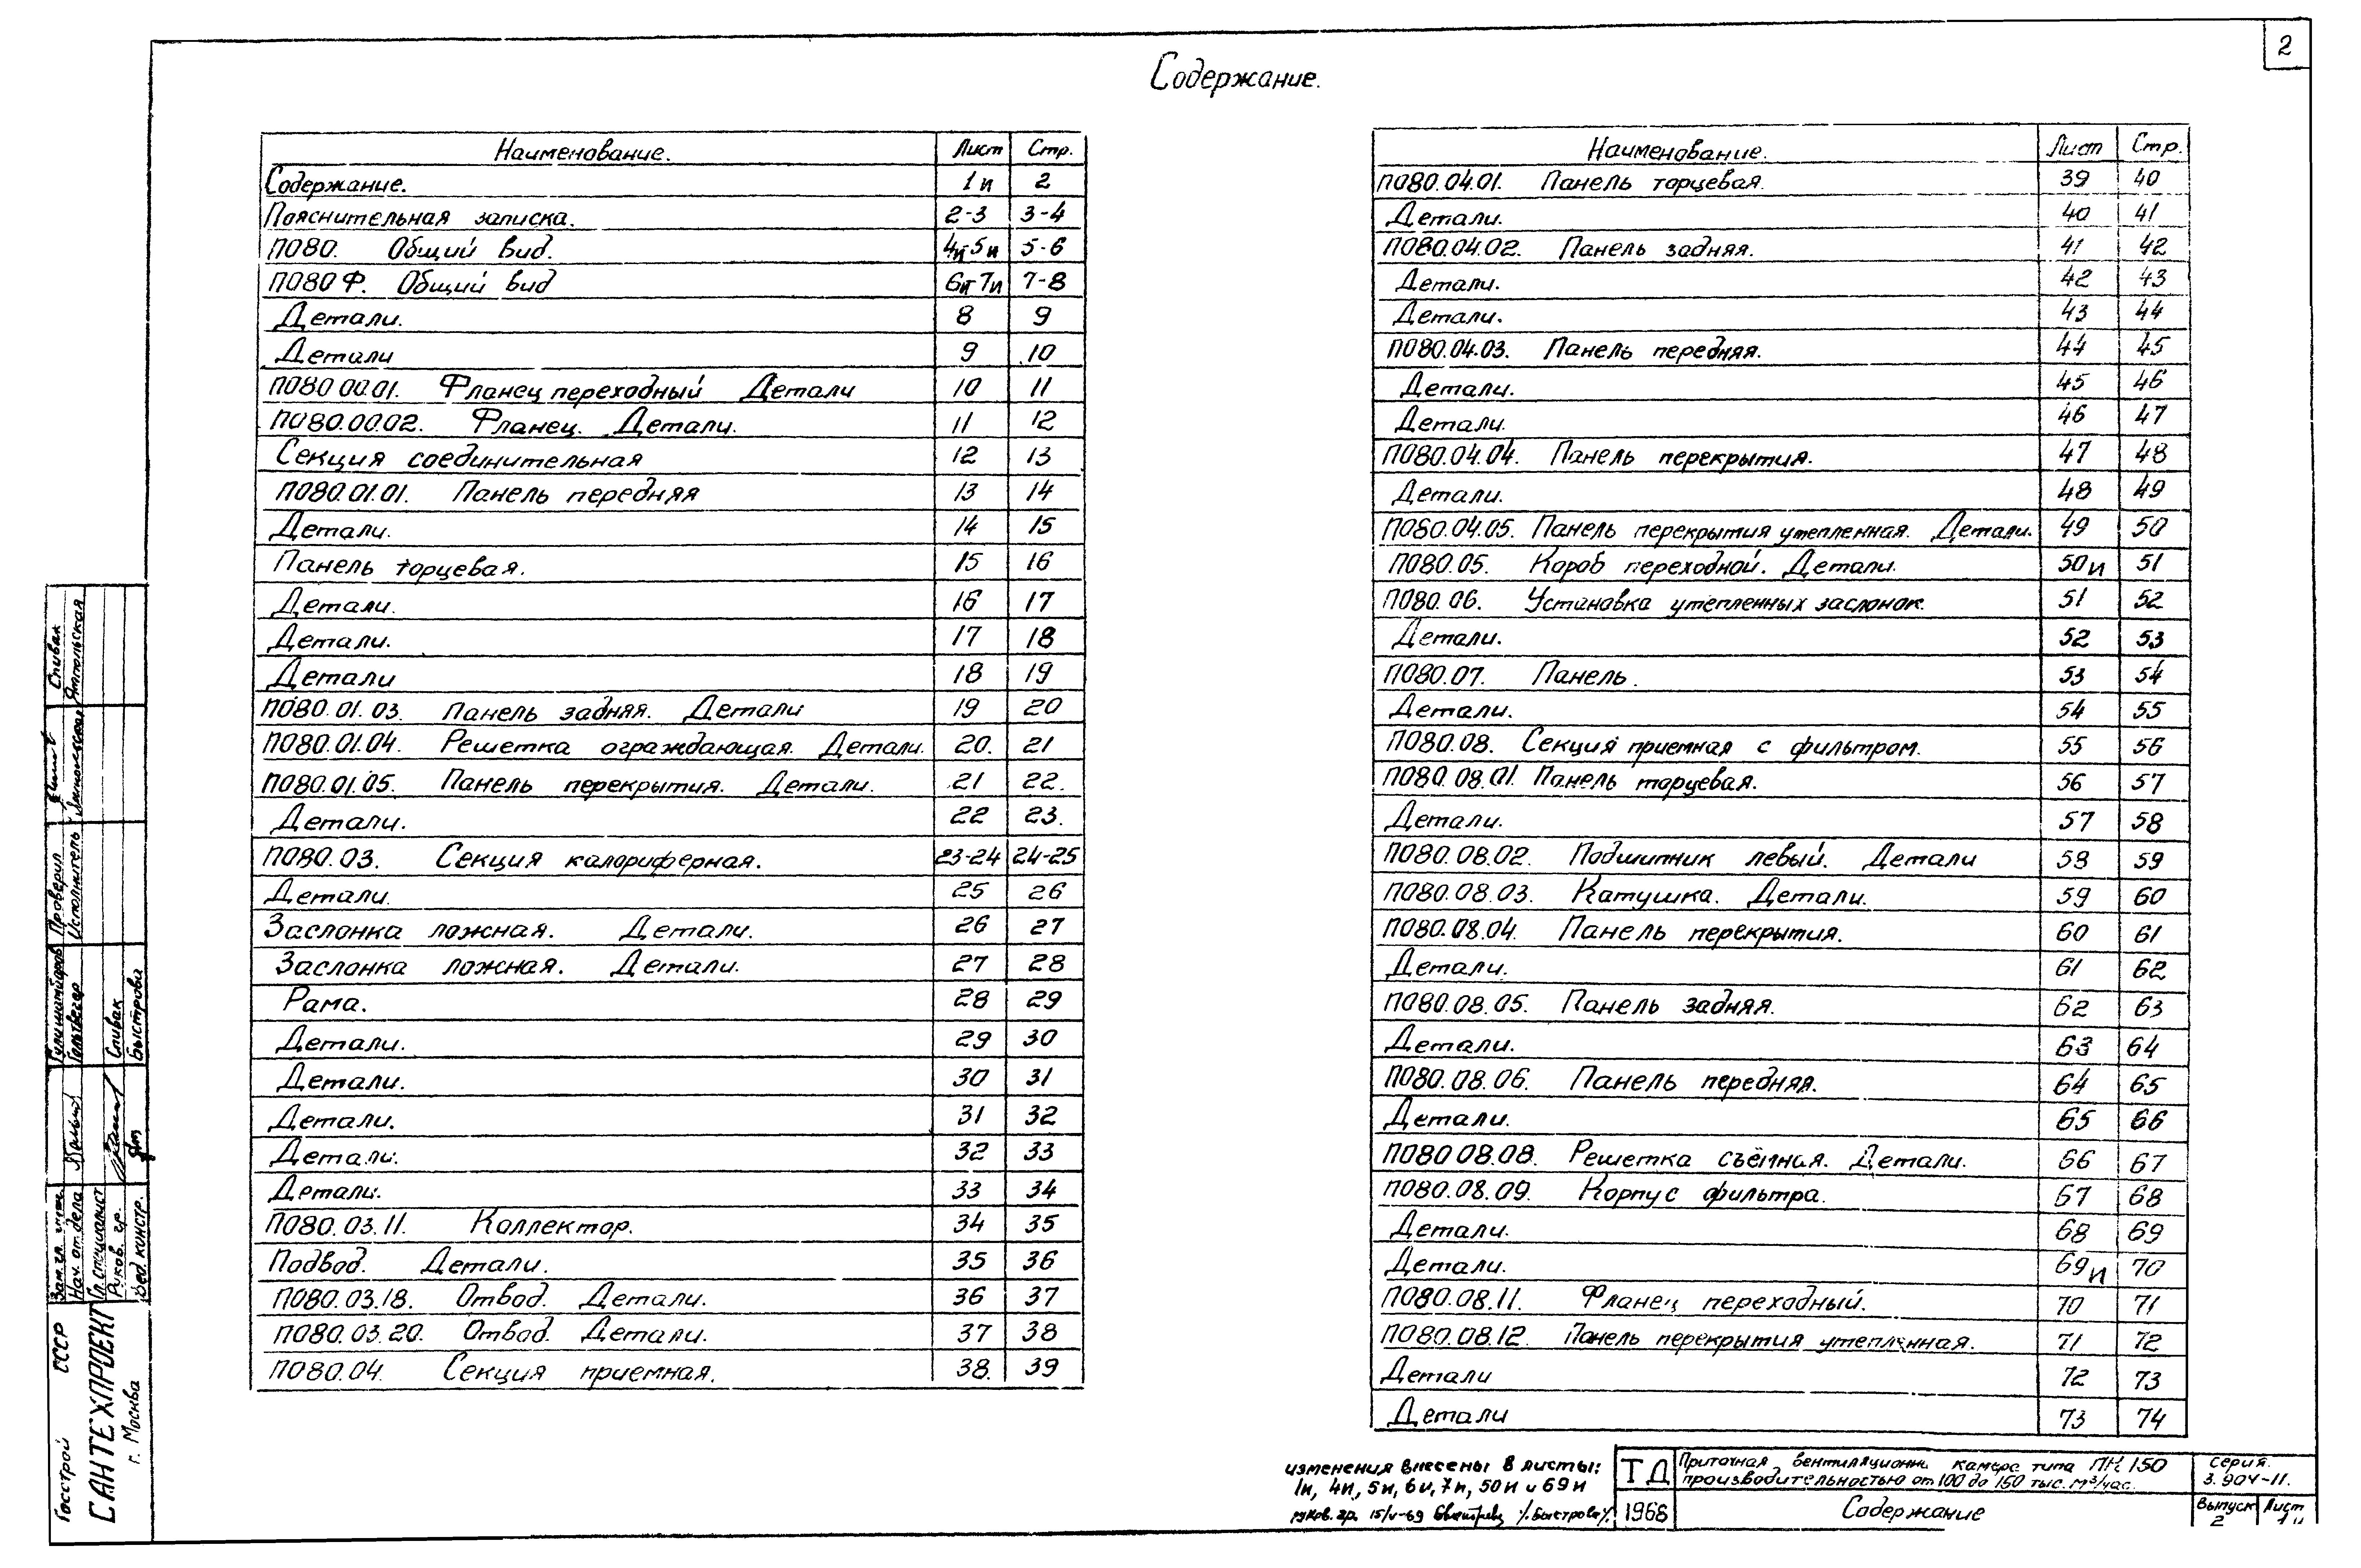 2
Содержание.
Наименование. Лист Стр.
Содержание. 1и 2
Пояснительная записка. 2-3 3-4
ПО80. Общий вид. 4и-5и 5-6
ПО80Ф. Общий вид 6и-7и 7-8
Детали. 8 9
Детали 9 10
ПО80 00.01. Фланец переходный Детали 10 11
ПО80.00.02. Фланец. Детали. 11 12
Секция соединительная 12 13
ПО80.01.01. Панель передняя 13 14
Детали. 14 15
Панель торцевая. 15 16
Детали. 16 17
Детали. 17 18
Детали 18 19
ПО80.01.03. Панель задняя. Детали 19 20
ПО80.01.04. Решетка ограждающая. Детали. 20. 21
ПО80.01.05. Панель перекрытия. Детали. 21 22.
Детали. 22 23.
ПО80.03. Секция калориферная. 23-24 24-25
Детали. 25 26
Заслонка ложная. Детали. 26 27
Заслонка ложная. Детали. 27 28
Рама. 28 29
Детали. 29 30
Детали. 30 31
Детали. 31 32
Детали. 32 33
Детали. 33 34
ПО80.03.11. Коллектор. 34 35
Подвод. Детали. 35 36
ПО80.03.18. Отвод. Детали. 36 37
ПО80.03.20. Отвод. Детали. 37 38
ПО80.04. Секция приемная. 38. 39
Наименование. Лист Стр.
ПО80.04.01. Панель торцевая. 39 40
Детали. 40 41
ПО80.04.02. Панель задняя. 41 42
Детали. 42 43
Детали. 43 44
ПО80.04.03. Панель передняя. 44 45
Детали. 45 46
Детали. 46 47
ПО80.04.04. Панель перекрытия. 47 48
Детали. 48 49
ПО80.04.05. Панель перекрытия утепленная. Детали. 49 50
ПО80.05. Короб переходной. Детали. 50и 51
ПО80.06. Установка утепленных заслонок. 51 52
Детали. 52 53
ПО80.07. Панель. 53 54
Детали. 54 55
ПО80.08. Секция приемная с фильтром. 55 56
ПО80.08.01. Панель торцевая. 56 57
Детали. 57 58
ПО80.08.02. Подшипник левый. Детали 58 59
ПО80.08.03. Катушка. Детали. 59 60
ПО80.08.04. Панель перекрытия. 60 61
Детали. 61 62
ПО80.08.05. Панель задняя. 62 63
Детали. 63 64
ПО80.08.06. Панель передняя. 64 65
Детали. 65 66
ПО80 08.08. Решетка съемная. Детали. 66 67
ПО80.08.09. Корпус фильтра. 67 68
Детали. 68 69
Детали. 69и 70
ПО80.08.11. Фланец переходный. 70 71
ПО80.08.12. Панель перекрытия утепленная. 71 72
Детали 72 73
Детали 73 74
изменения внесены в листы:
1и, 4и, 5и, 6и, 7и, 50и и 69и
руков. гр. 15/V-69 /Быстрова/
ТД
1968
Приточная вентиляционн камера типа ПК 150
производительностью от 100 до 150 тыс. м³/час.
Содержание
Серия.
3.904-11.
Выпуск 2
Лист 1и
Госстрой СССР
САНТЕХПРОЕКТ
г. Москва
Зам. гл. инж.
Нач. отдела Гольвегер
Гл. специалист
Руков. гр. Спивак
Вед. констр. Быстрова
Проверил Спивак
Исполнитель